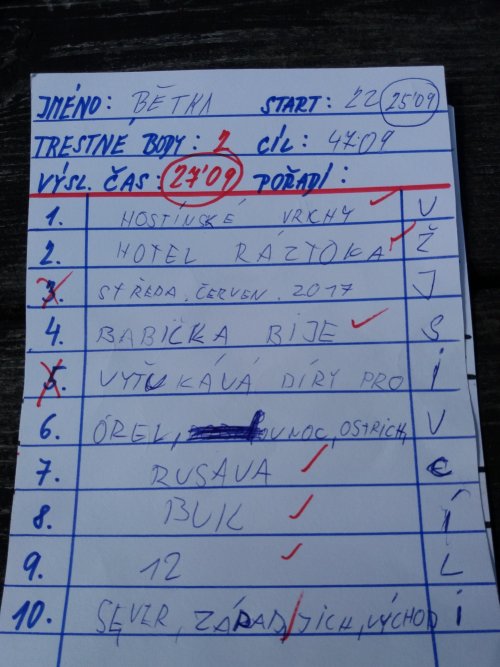 JMÉNO: BĚTKA START: 22 25'09
TRESTNÉ BODY: 2 CÍL: 47:09
VÝSL. ČAS: 27'09 POŘADÍ:
1. HOSTÍNSKÉ VRCHY V
2. HOTEL RÁZTOKA Ž
3. STŘEDA, ČERVEN. 2017 J
4. BABIČKA BIJE S
5. VYŤUKÁVÁ DÍRY PRO Í
6. ÓREL, OSTRICH, V
7. RUSAVA E
8. BUK Í
9. 12 L
10. SEVER, ZÁPAD, JICH, VÝCHOD Í